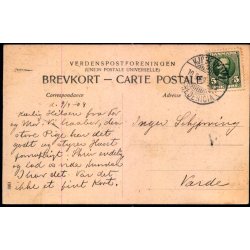 VERDENSPOSTFORENINGEN
(UNION POSTALE UNIVERSELLE)
BREVKORT – CARTE POSTALE
Correspondance
Adresse
d. 9/4-09
Kærlig Hilsen fra Far
og Mor. Vi haaber, den
store Pige har det
godt og styrer Huset
fornuftigt. Skriv endelig
og lad os vide hvordan
I har det. Var det
ikke et fint Kort.
Inger Schjørring
Varde